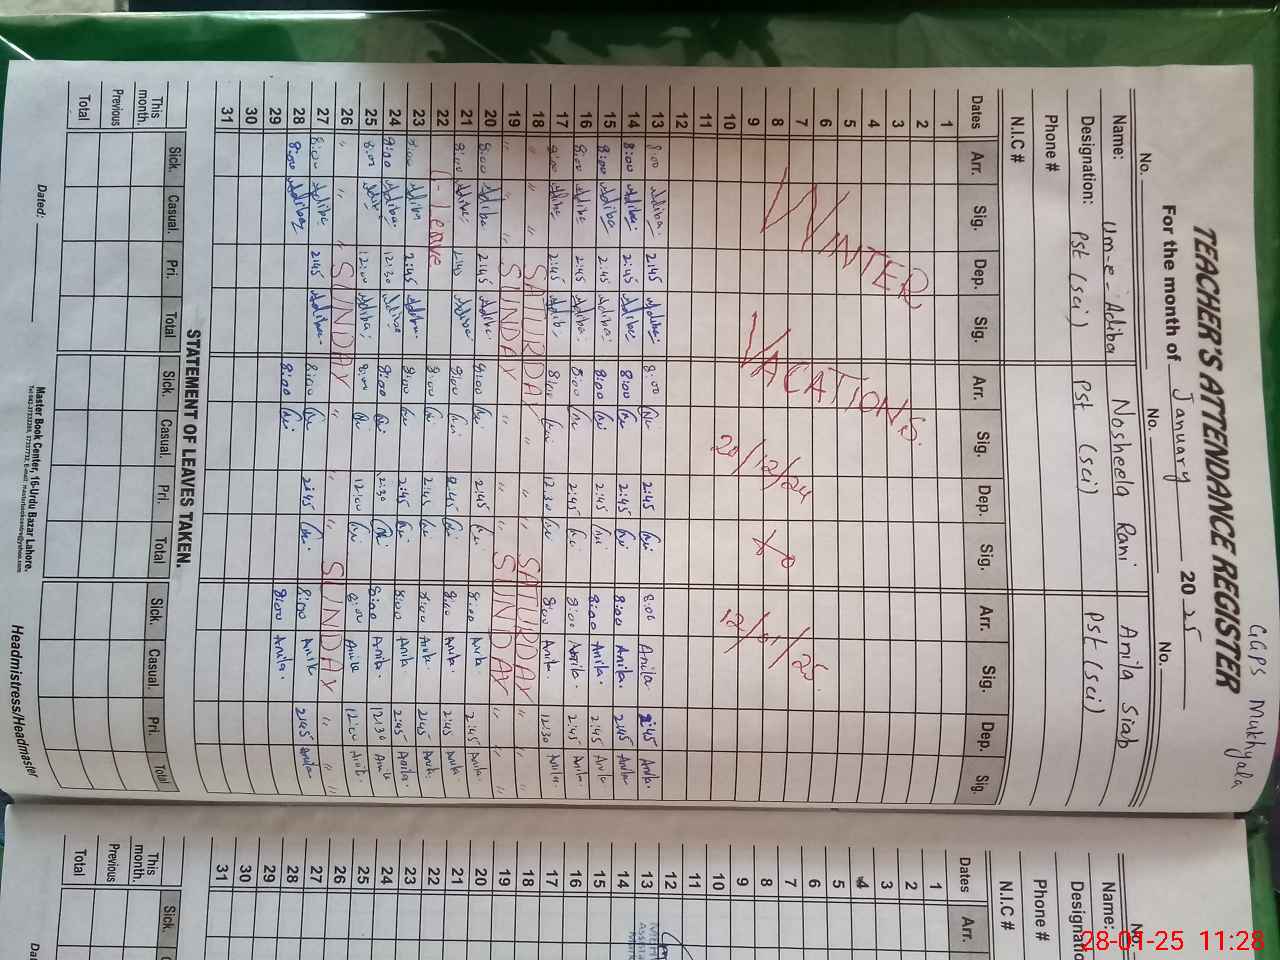 GGPS Mukhyala
TEACHER'S ATTENDANCE REGISTER
For the month of January 2025
No. No. No.
Name: Um-e-Adiba Nosheela Rani Anila Siab
Designation: Pst (sci) Pst (sci) Pst (sci)
Phone #
N.I.C #
Dates Arr. Sig. Dep. Sig. Arr. Sig. Dep. Sig. Arr. Sig. Dep. Sig.
1
2
3
4
5
6
7
8
9
10
11
12
WINTER VACATIONS
20/12/24 To 12/01/25
13 8:00 Adiba 2:45 Adiba 8:00 2:45 8:00 Anila 2:45 Anila
14 8:00 Adiba 2:45 Adiba 8:00 2:45 8:00 Anila 2:45 Anila
15 8:00 Adiba 2:45 Adiba 8:00 2:45 8:00 Anila 2:45 Anila
16 8:00 Adiba 2:45 Adiba 8:00 2:45 8:00 Anila 2:45 Anila
17 8:00 Adiba 2:45 Adiba 8:00 12:30 8:00 Anila 12:30 Anila
18 " " SATURDAY " " SATURDAY " "
19 " " SUNDAY " " SUNDAY " "
20 8:00 Adiba 2:45 Adiba 8:00 2:45 8:00 Anila 2:45 Anila
21 8:00 Adiba 2:45 Adiba 8:00 2:45 8:00 Anila 2:45 Anila
22 Leave 8:00 2:45 8:00 Anila 2:45 Anila
23 8:00 Adiba 2:45 Adiba 8:00 2:45 8:00 Anila 2:45 Anila
24 8:00 Adiba 12:30 Adiba 8:00 12:30 8:00 Anila 12:30 Anila
25 8:00 Adiba 12:00 Adiba 8:00 12:00 8:00 Anila 12:00 Anila
26 " " " SUNDAY " " " SUNDAY " "
27 8:00 Adiba 2:45 Adiba 8:00 2:45 8:00 Anila 2:45 Anila
28 8:00 Adiba 8:00 8:00 Anila
29
30
31
STATEMENT OF LEAVES TAKEN.
Sick. Casual. Pri. Total Sick. Casual. Pri. Total Sick. Casual. Pri. Total
This month.
Previous
Total
Dated:
Master Book Center, 16-Urdu Bazar Lahore.
Headmistress/Headmaster
No.
Name:
Designation
Phone #
N.I.C #
Dates Arr.
1
2
3
4
5
6
7
8
9
10
11
12
13
14
15
16
17
18
19
20
21
22
23
24
25
26
27
28
29
30
31
Sick.
This month.
Previous
Total
28-01-25 11:28